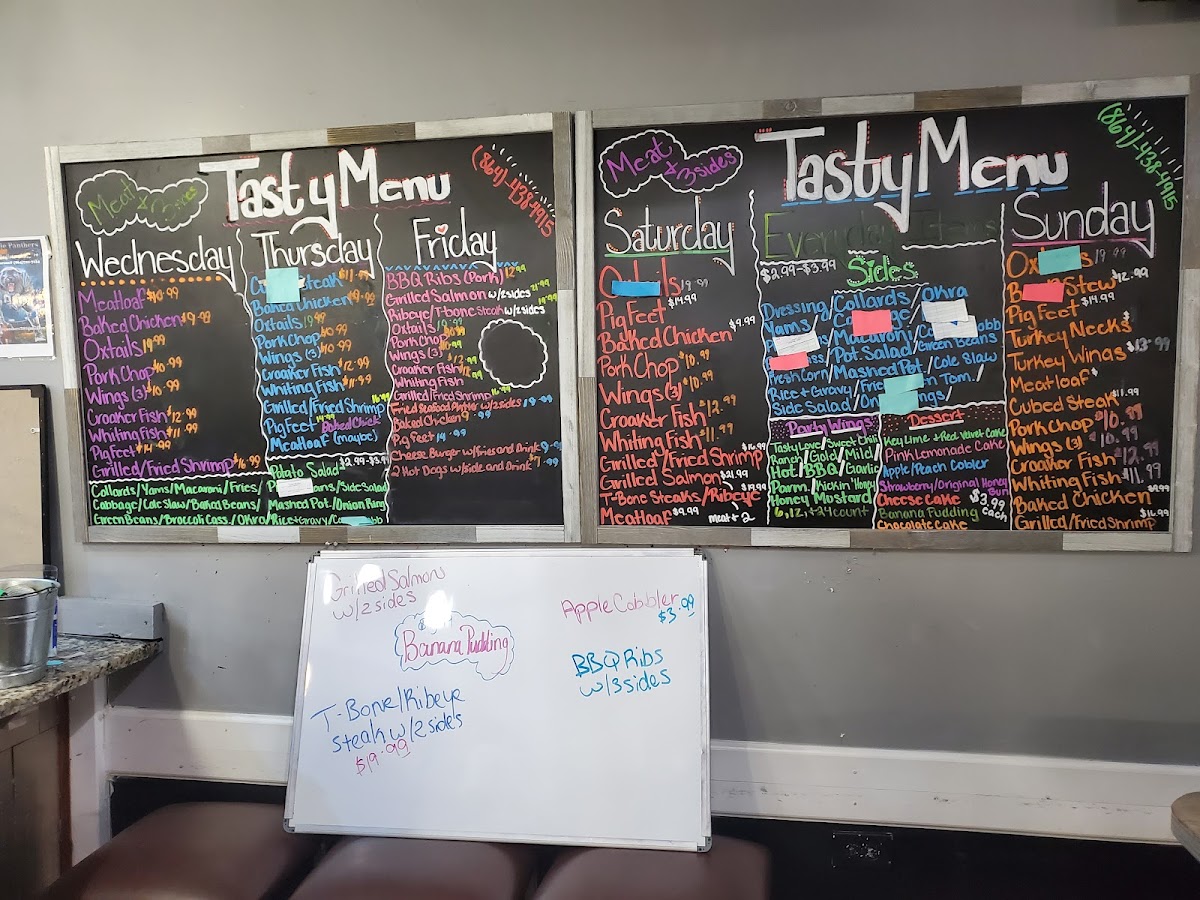 Tasty Menu
Meat & 3 sides
(864)-438-4915
Wednesday
Meatloaf $10.99
Baked Chicken $9.99
Oxtails 19.99
Pork Chop $10.99
Wings (3) $10.99
Croaker Fish $12.99
Whiting Fish $11.99
Pig Feet $14.99
Grilled/Fried Shrimp $16.99
Thursday
$11.99
Baked Chicken $9.99
Oxtails 19.99
Pork Chop $10.99
Wings (3) $10.99
Croaker Fish $12.99
Whiting Fish $11.99
Grilled/Fried Shrimp 16.99
Pig Feet Baked Chick
Meatloaf (maybe)
Collards/Yams/Macaroni/Fries/
Cabbage/Cole Slaw/Baked Beans/
Green Beans/Broccoli Cass./Okra/Rice+Gravy/
Potato Salad $2.99-$3.99
/Side Salad
Mashed Pot/Onion Ring
Friday
BBQ Ribs (Pork) 12.99
Grilled Salmon w/2sides 21.99
Ribeye/T-bone Steak w/2sides 19.99
Oxtails
Pork Chop
Wings (3)
Croaker Fish
Whiting Fish
Grilled/Fried Shrimp 16.99
Fried Seafood Platter w/2sides 19.99
Baked Chicken 9.99
Pig feet 14.99
Cheese Burger w/Fries and Drink 9.99
2 Hot Dogs w/side and Drink
Tasty Menu
Meat & 3 sides
(864)-438-4915
Saturday
Oxtails 19.99
Pig Feet $14.99
Baked Chicken $9.99
Pork Chop $10.99
Wings (3) $10.99
Croaker Fish $12.99
Whiting Fish $11.99
Grilled/Fried Shrimp $16.99
Grilled Salmon $21.99
T-Bone Steaks/Ribeye $19.99
Meatloaf $9.99 meat + 2
Everyday Items
$2.99-$3.99
Sides
Dressing/Collards/Okra
Yams/
Macaroni
Pot Salad/Green Beans
Fresh Corn/Mashed Pot/Cole Slaw
Rice + Gravy/
Side Salad/
Party Wings
Tasty Love/Sweet Chili
Ranch/Gold/Mild/
Hot/BBQ/Garlic
Parm./Kickin' Honey
Honey Mustard
6, 12, +24 count
Dessert
Key Lime + Red Velvet Cake
Pink Lemonade Cake
Apple/Peach Cobbler
Strawberry/Original Honey Bun
Cheese Cake $3.99 each
Banana Pudding
Chocolate Cake
Sunday
19.99
Stew $12.99
Pig Feet $14.99
Turkey Necks $
Turkey Wings $13.99
Meatloaf $
Cubed Steak $11.99
Pork Chop $10.99
Wings (3) $10.99
Croaker Fish $12.99
Whiting Fish $11.99
Baked Chicken $9.99
Grilled/Fried Shrimp $16.99
Grilled Salmon
w/2 sides
Banana Pudding
T-Bone/Ribeye
Steak w/2 sides
$19.99
Apple Cobbler
$3.99
BBQ Ribs
w/3 sides